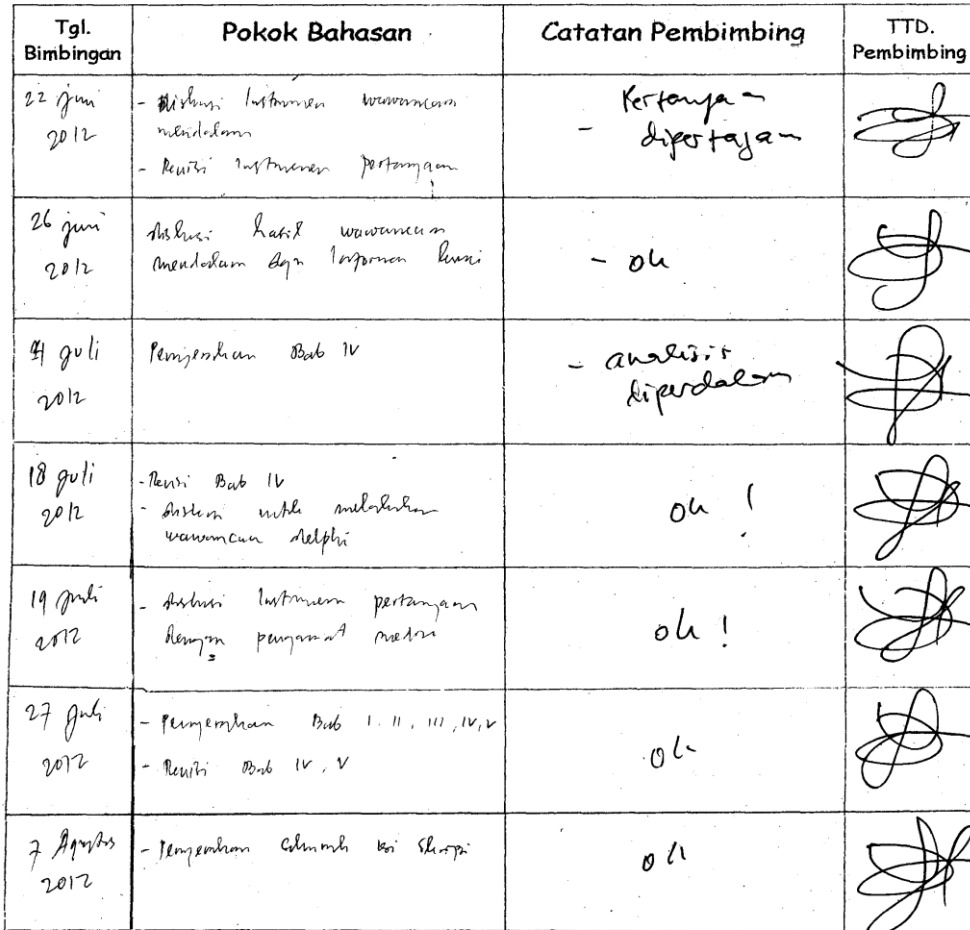 Tgl. Bimbingan
Pokok Bahasan
Catatan Pembimbing
TTD. Pembimbing
22 juni 2012
- Diskusi Instrumen wawancara
mendalam
- Revisi Instrumen pertanyaan
Pertanyaan
- dipertajam
26 juni 2012
Diskusi hasil wawancara
mendalam dgn Informan kunci
- ok
juli 2012
Penyerahan Bab IV
- analisis
diperdalam
18 juli 2012
- Revisi Bab IV
- Diskusi untuk melakukan
wawancara delphi
ok !
19 juli 2012
- Diskusi Instrumen pertanyaan
dengan pengamat media
ok !
27 juli 2012
- Penyerahan Bab I. II, III, IV, V
- Revisi Bab IV, V
ok
7 Agustus 2012
- Penyerahan isi Skripsi
ok